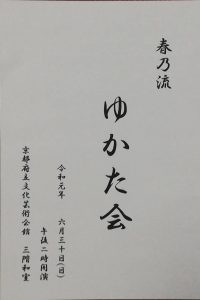 春乃流
ゆかた会
令和元年 六月三十日(日)
午後二時開演
京都府立文化芸術会館 三階和室